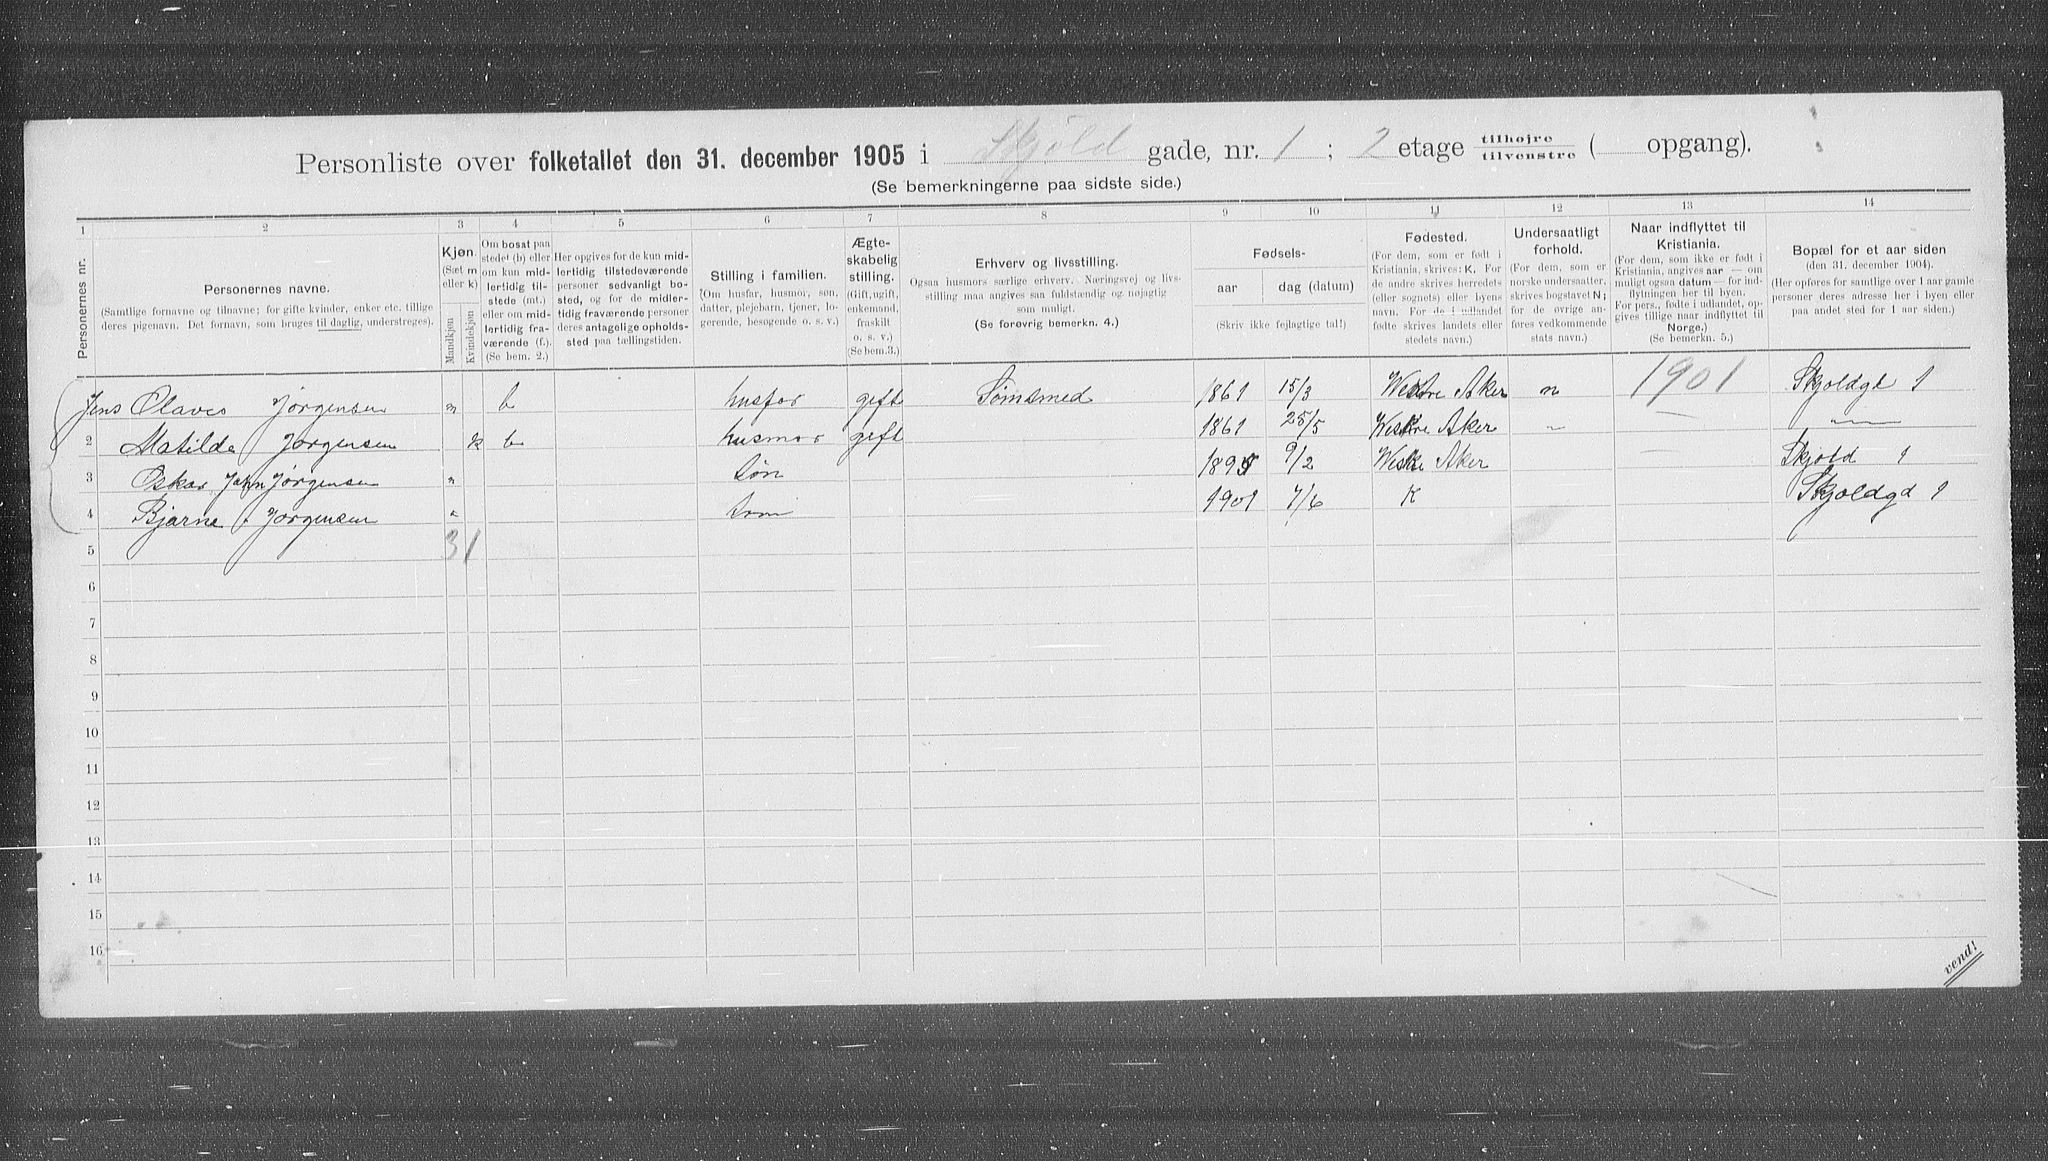 Personliste over folketallet den 31. december 1905 i Skjold gade, nr. 1 ; 2 etage tilhøjre / tilvenstre ( opgang).
(Se bemerkningerne paa sidste side.)
1 2 3 4 5 6 7 8 9 10 11 12 13 14
Personernes nr.
Personernes navne.
(Samtlige fornavne og tilnavne; for gifte kvinder, enker etc. tillige
deres pigenavn. Det fornavn, som bruges til daglig, understreges).
Kjøn.
(Sæt m
eller k)
Mandkjøn
Kvindekjøn
Om bosat paa
stedet (b) eller
om kun mid-
lertidig til-
stede (mt.)
eller om mid-
lertidig fra-
værende (f.).
(Se bem. 2.)
Her opgives for de kun mid-
lertidig tilstedeværende
personer sedvanligt bo-
sted, og for de midler-
tidig fraværende personer
deres antagelige opholds-
sted paa tællingstiden.
Stilling i familien.
(Om husfar, husmor, søn,
datter, plejebarn, tjener, lo-
gerende, besøgende o. s. v.)
Ægte-
skabelig
stilling.
(Gift, ugift,
enkemand,
fraskilt
o. s. v.)
(Se bem.3.)
Erhverv og livsstilling.
Ogsaa husmors særlige erhverv. Næringsvej og livs-
stilling maa angives saa fuldstændig og nøjagtig
som muligt.
(Se forøvrig bemerkn. 4.)
Fødsels-
aar dag (datum)
(Skriv ikke fejlagtige tal!)
Fødested.
(For dem, som er født i
Kristiania, skrives: K. For
de andre skrives herredets
(eller sognets) eller byens
navn. For de i udlandet
fødte skrives landets eller
stedets navn.)
Undersaatligt
forhold.
(For dem, som er
norske undersaatter,
skrives bogstavet N;
for de øvrige an-
føres vedkommende
stats navn.)
Naar indflyttet til
Kristiania.
(For dem, som ikke er født i
Kristiania, angives aar — om
muligt ogsaa datum — for ind-
flytningen her til byen.
For pers., fødte i udlandet, op-
gives tillige naar indflyttet til
Norge.)
(Se bemerkn. 5.)
Bopæl for et aar siden
(den 31. december 1904).
(Her opføres for samtlige over 1 aar gamle
personer deres adresse her i byen eller
paa andet sted for 1 aar siden.)
Jens Olaves Jørgensen m b husfar gift Sømsmed 1861 15/3 Westre Aker n 1901 Skjoldgd 1
2 Matilde Jørgensen k b husmor gift 1861 25/5 Westre Aker " — "
3 Oskar John Jørgensen m søn 1895 9/2 Westre Aker — Skjold 1
4 Bjarne Jørgensen m søn 1901 7/6 K Skjoldgd 1
5 3 1
6
7
8
9
10
11
12
13
14
15
16
vend!